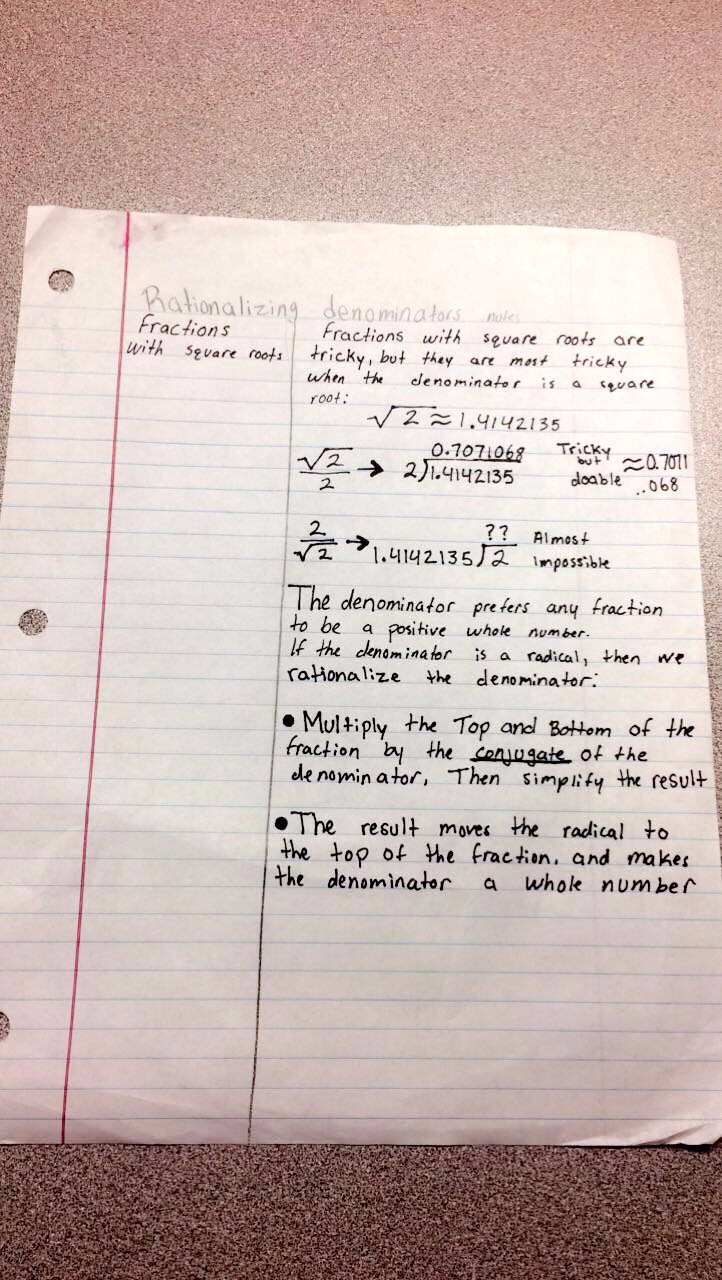 Rationalizing denominators notes
Fractions
with square roots
Fractions with square roots are
tricky, but they are most tricky
when the denominator is a square
root:
√2 ≈ 1.4142135
√2/2 → 2)1.4142135 0.7071068 Tricky but doable ≈0.7071
..068
2/√2 → 1.4142135)2 ?? Almost
Impossible
The denominator prefers any fraction
to be a positive whole number.
If the denominator is a radical, then we
rationalize the denominator:
● Multiply the Top and Bottom of the
fraction by the conjugate of the
denominator, Then simplify the result
● The result moves the radical to
the top of the fraction, and makes
the denominator a whole number